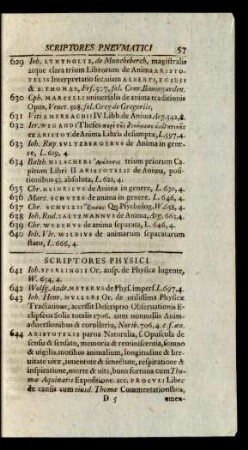 SCRIPTORES PNEVMATICI 57
629 Ioh. LYNTHOLTZ, de Muncheberch, magistralis
atque clara trium Librorum de Anima ARISTO-
TELIS Interpretatio secundum ALBERT. EGIDII
& D. THOMAE, Frf. 507. fol. Conr. Baumgarden.
630 Cph. MARZELLI universalis de anima traditionis
Opus, Venet. 508. fol. Greg. de Gregoriis.
631 Viti AMERBACHII IV. Libb. de Anima, Arg. 542, 8.
632 Ier. WEGANDI Theses
ex ARISTOT. de Anima Libris desumpta, L. 597, 4.
633 Ioh. Rup. SVLTZBERGERVS de Anima in gene-
re, L. 619, 4.
634 Balth. HILSCHERI trium priorum Ca-
pitum Libri II ARISTOTELIS de Anima, posi-
tionibus 53. absoluta, L. 612, 4.
635 Chr. HEINRICVS de Anima in genere, L. 630, 4.
636 Marc. SCHWTZE de anima in genere, L. 646, 4.
637 Chr. SCHVLZII Qq. Psycholog. W. 658, 4.
638 Ioh. Rud. SALTZMANNVS de Anima, Arg. 665, 4.
639 Chr. WEBERVS de anima separata, L. 646, 4.
640 Ioh. Vlr. WILDIVS de animarum separatarum
statu, L. 666, 4.
SCRIPTORES PHYSICI
641 Ioh. SPERLINGII Or. ausp. de Physica lugente,
W. 634, 4.
642 Wolfg. Andr. METERVS de Phys. imperf. L. 697, 4.
643 Ioh. Henr. MVLLERI Or. de utilissima Physicæ
Tractatione, accessit Descriptio Observationis E-
clipseos Solis totalis 1706. cum nonnullis Anim-
adversionibus & corollariis, Norib. 706, 4. c. f. æn.
644 ARISTOTELIS parva Naturalia, s. Opuscula de
sensu & sensato, memoria & reminiscentia, somno
& vigilia, motibus animalium, longitudine & bre-
vitate vitæ, iuventute & senectute, respiratione &
inspiratione, morte & vita, bona fortuna cum Tho-
mæ Aquinatis Expositione. acc. PROCVLI Liber
de causis cum eiusd. Thomæ Commentationibus,
D 5 emen-